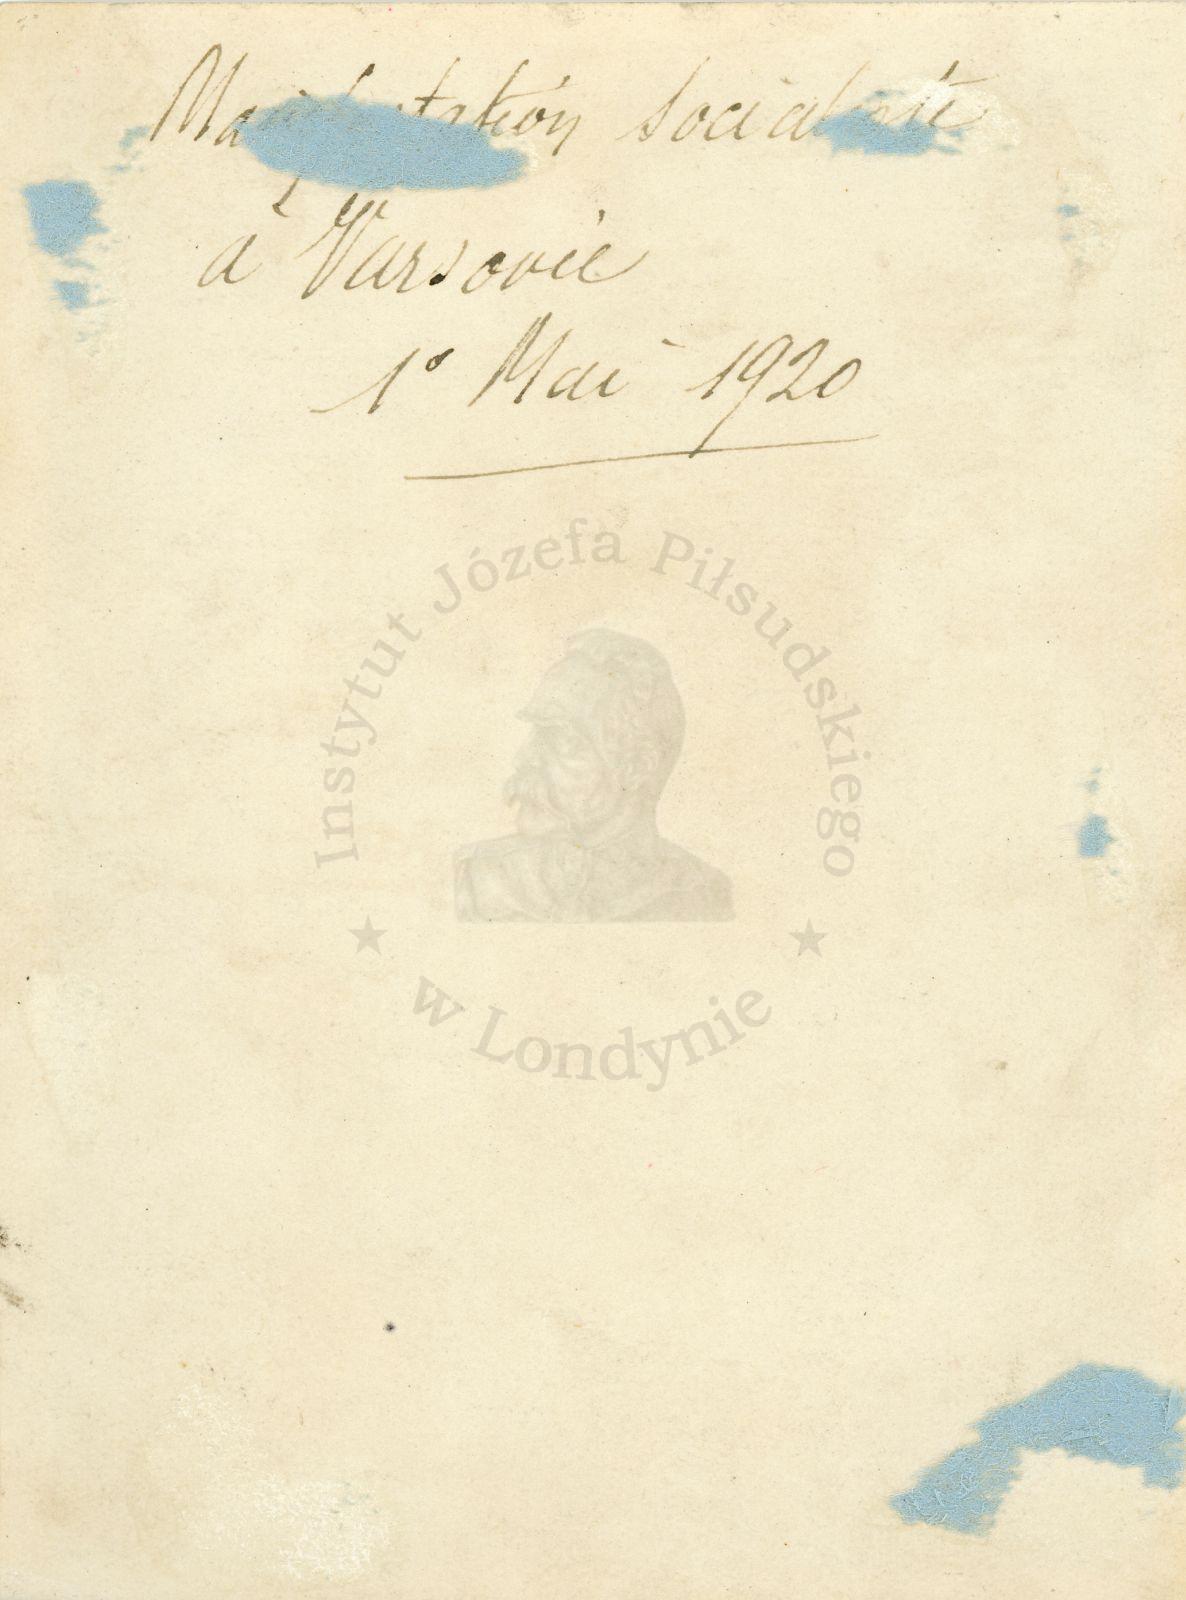 Manifestation socialiste
à Varsovie
1º Mai 1920
Instytut Józefa Piłsudskiego
w Londynie